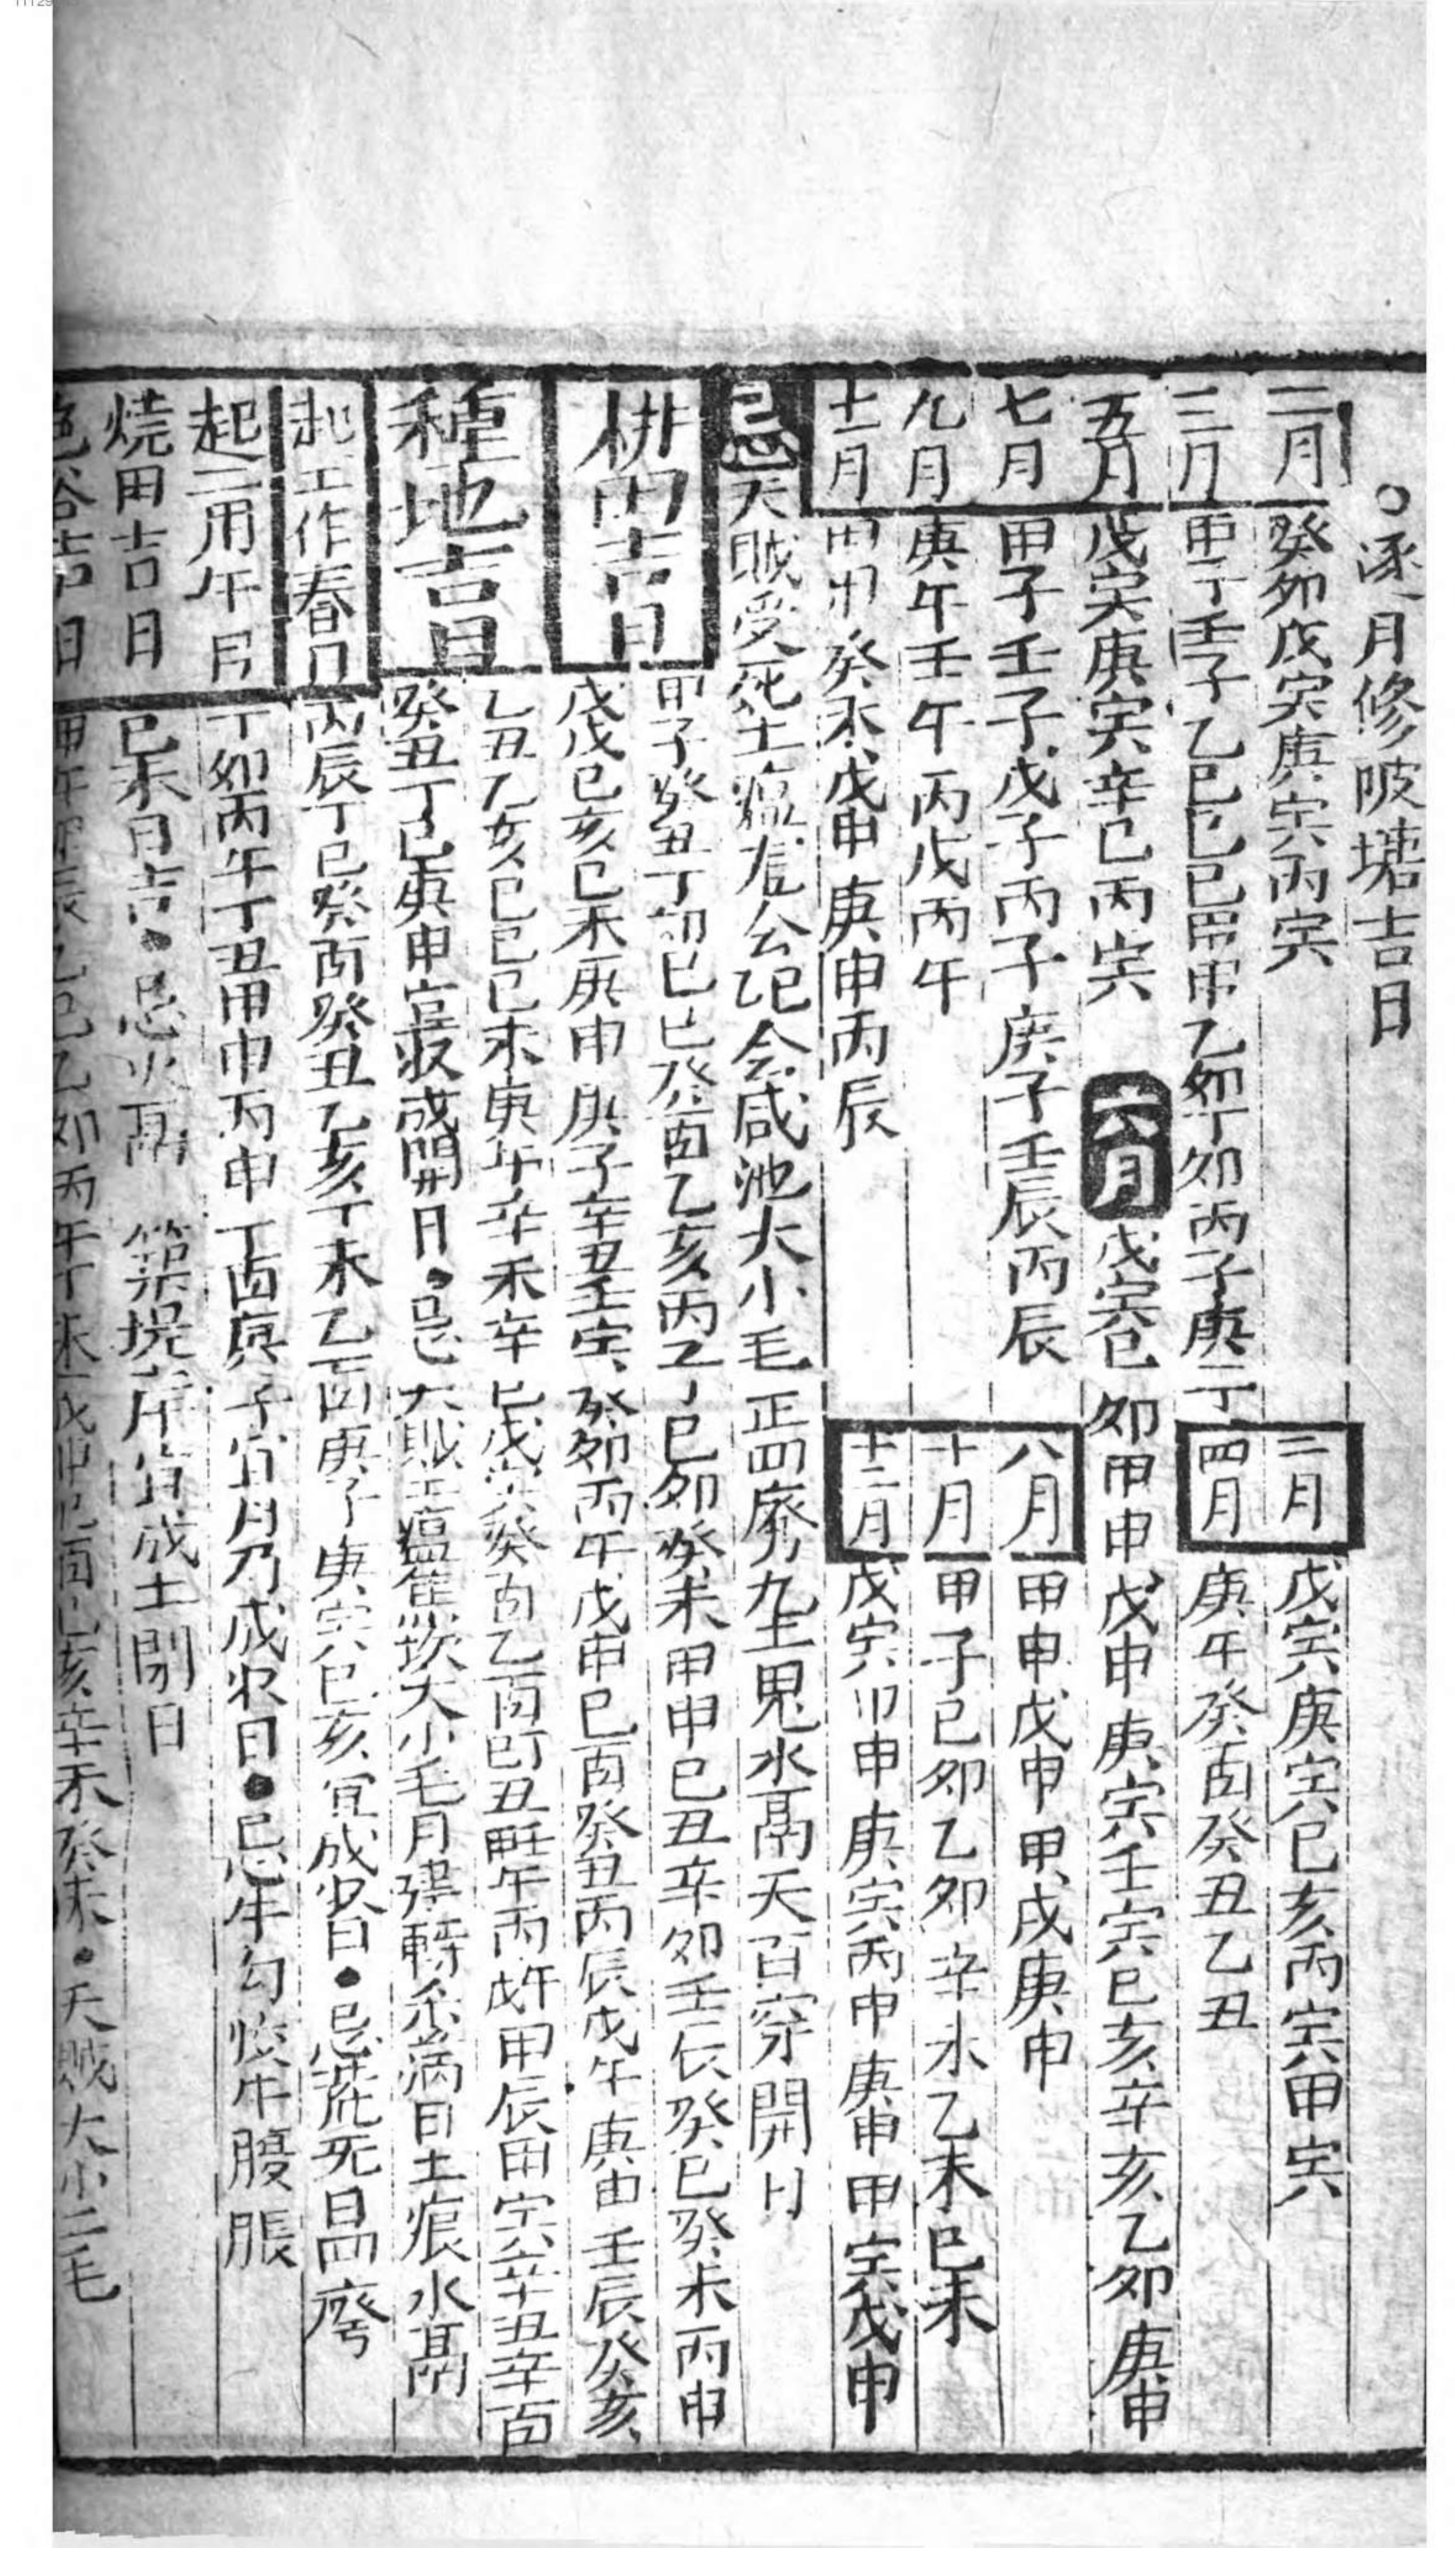 ○逐月修陂塘吉日
二月 癸卯戊寅庚寅丙寅 二月 戊寅庚寅己亥丙寅甲寅
三月 甲子壬子乙巳己巳甲申乙卯丁卯丙子庚子 四月 庚午癸酉癸丑乙丑
五月 戊寅庚寅辛巳丙寅 六月 戊寅己卯甲申戊申庚寅壬寅己亥辛亥乙卯庚申
七月 甲子壬子戊子丙子庚子壬辰丙辰 八月 甲申戊申甲戌庚申
九月 庚午壬午丙戌丙午 十月 甲子己卯乙卯辛未乙未己未
十一月 甲申癸未戊申庚申丙辰 十二月 戊寅甲申庚寅丙申庚申甲寅戊申
忌天賊受死土瘟 会咸池大小毛正四廢九土鬼水鬲天百穿開日
耕田吉日 甲子癸丑丁卯己巳癸酉乙亥丙子己卯癸未甲申己丑辛卯壬辰癸巳癸未丙申
戊戌己亥己未庚申庚子辛丑壬寅癸卯丙午戊申己酉癸丑丙辰戊午庚申壬辰癸亥
種地吉日 乙丑乙亥己巳己未庚午辛未辛巳戊寅癸酉乙酉 丑 午丙 午甲辰甲寅辛丑辛酉
癸丑丁巳庚申宜收成開日●忌 大賊土瘟焦坎大小毛月建轉杀 日土痕水鬲
起工作春日 丙辰丁巳癸酉癸丑乙亥丁未乙酉庚子庚寅己亥宜成收日●忌 死日四廢
起工用牛日 丁卯丙午丁丑甲申丙申丁酉庚子宜月乃成收日●忌牛勾絞牛腹脹
燒田吉日 己未日吉●忌火鬲 築堤岸宜成土閉日
吉日 甲午 辰乙巳乙卯丙午丁未戊申己酉己亥辛未癸未●天賊大小二毛